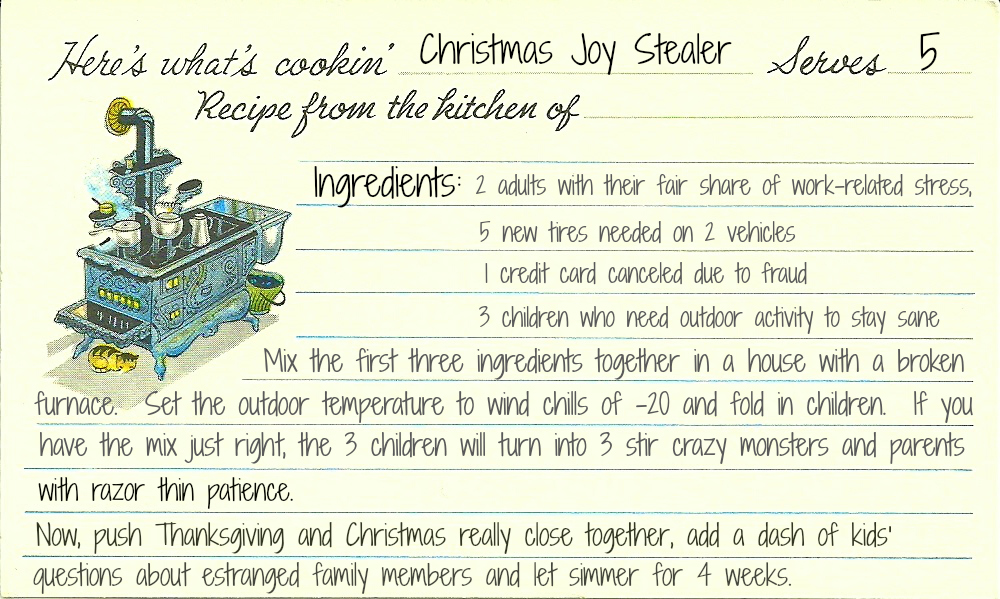 Here's what's cookin' Christmas Joy Stealer Serves 5
Recipe from the kitchen of
Ingredients: 2 adults with their fair share of work-related stress,
5 new tires needed on 2 vehicles
1 credit card canceled due to fraud
3 children who need outdoor activity to stay sane
Mix the first three ingredients together in a house with a broken
furnace. Set the outdoor temperature to wind chills of -20 and fold in children. If you
have the mix just right, the 3 children will turn into 3 stir crazy monsters and parents
with razor thin patience.
Now, push Thanksgiving and Christmas really close together, add a dash of kids'
questions about estranged family members and let simmer for 4 weeks.